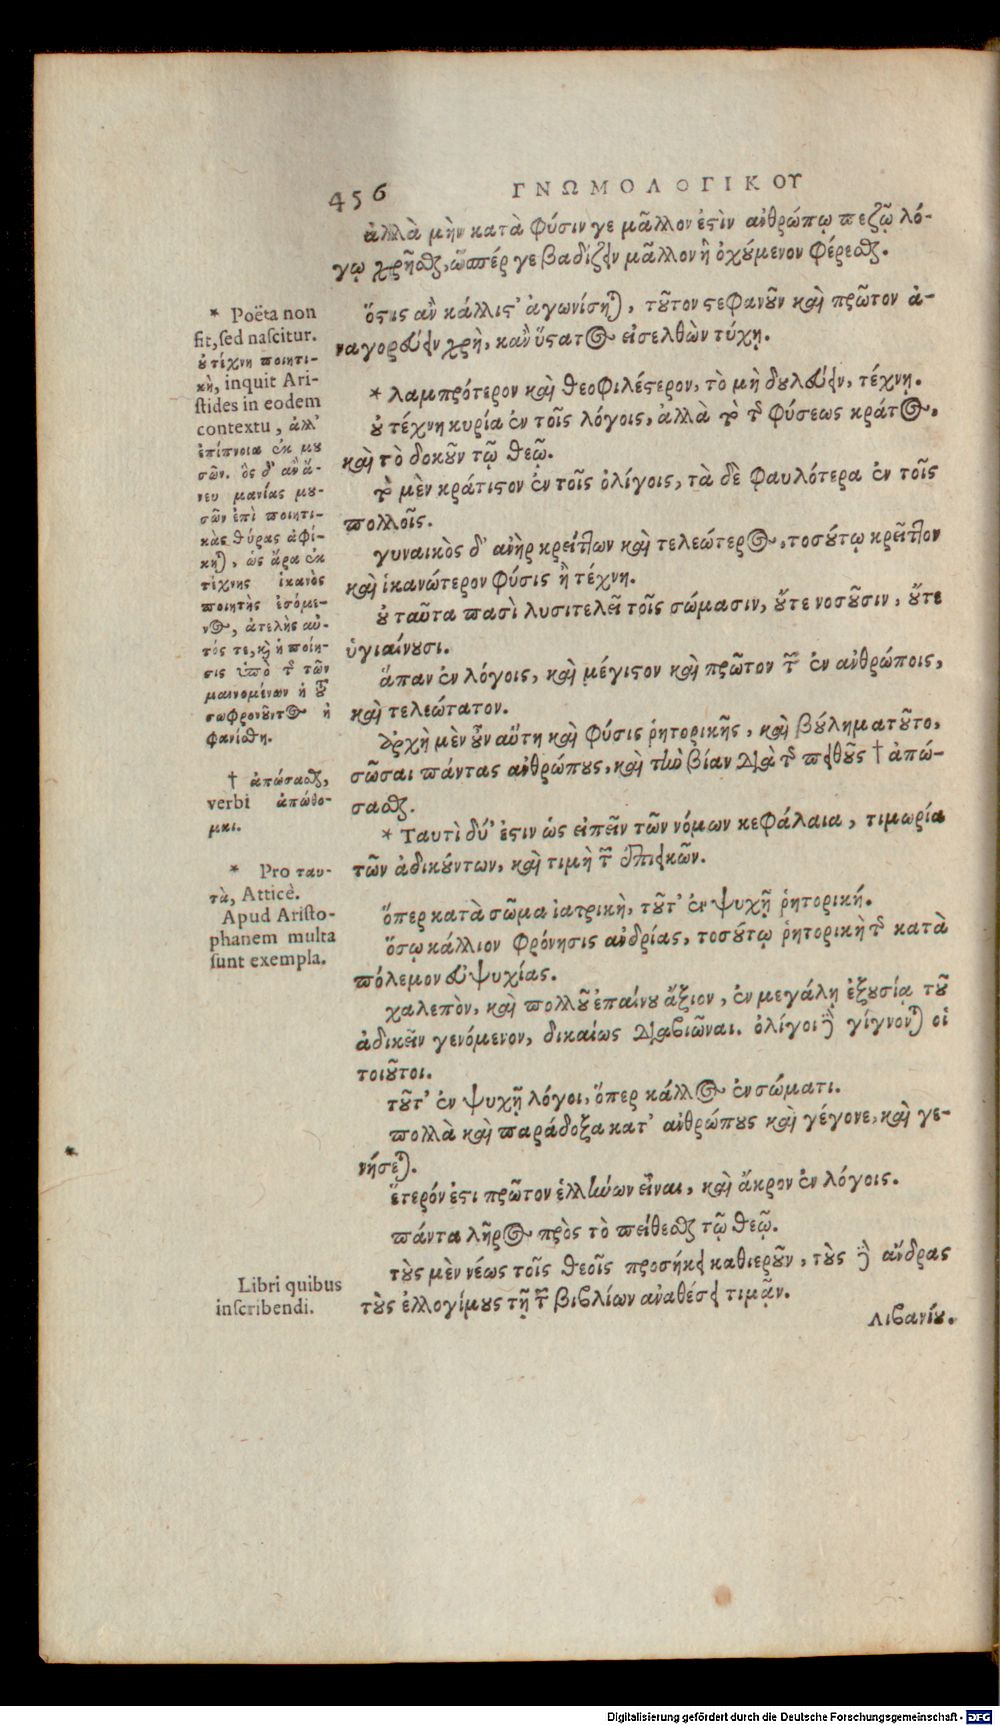 456 ΓΝΩΜΟΛΟΓΙΚΟΥ
ἀλλὰ μὴν κατὰ φύσιν γε μᾶλλον ἐστὶν ἀνθρώπῳ πεζῷ λό-
γῳ χρῆσθαι, ὥσπέρ γε βαδίζειν μᾶλλον ἢ ὀχούμενον φέρεσθαι.
ὅστις ἂν κάλλιστ' ἀγωνίσηται, τοῦτον στεφανοῦν καὶ πρῶτον ἀ-
ναγορεύειν χρὴ, κἂν ὕστατος εἰσελθὼν τύχῃ.
* λαμπρότερον καὶ θεοφιλέστερον, τὸ μὴ δουλεύειν, τέχνῃ.
οὐ τέχνη κυρία ἐν τοῖς λόγοις, ἀλλὰ τὸ τῆς φύσεως κράτος,
καὶ τὸ δοκοῦν τῷ θεῷ.
τὸ μὲν κράτιστον ἐν τοῖς ὀλίγοις, τὰ δὲ φαυλότερα ἐν τοῖς
πολλοῖς.
γυναικὸς δ' ἀνὴρ κρείττων καὶ τελεώτερος, τοσούτῳ κρεῖττον
καὶ ἱκανώτερον φύσις ἢ τέχνη.
οὐ ταῦτα πασὶ λυσιτελεῖ τοῖς σώμασιν, οὔτε νοσοῦσιν, οὔτε
ὑγιαίνουσι.
ἅπαν ἐν λόγοις, καὶ μέγιστον καὶ πρῶτον τῶν ἐν ἀνθρώποις,
καὶ τελεώτατον.
ἀρχὴ μὲν οὖν αὕτη καὶ φύσις ῥητορικῆς, καὶ βούλημα τοῦτο,
σῶσαι πάντας ἀνθρώπους, καὶ τὴν βίαν διὰ τῆς πειθοῦς † ἀπώ-
σασθαι.
* Ταυτὶ δύ' ἐστιν ὡς εἰπεῖν τῶν νόμων κεφάλαια, τιμωρία
τῶν ἀδικούντων, καὶ τιμὴ τῶν ἐπιεικῶν.
ὅπερ κατὰ σῶμα ἰατρικὴ, τοῦτ' ἐν ψυχῇ ῥητορική.
ὅσῳ κάλλιον φρόνησις ἀνδρίας, τοσούτῳ ῥητορικὴ τῆς κατὰ
πόλεμον εὐψυχίας.
χαλεπὸν, καὶ πολλοῦ ἐπαίνου ἄξιον, ἐν μεγάλῃ ἐξουσίᾳ τοῦ
ἀδικεῖν γενόμενον, δικαίως διαβιῶναι. ὀλίγοι δὲ γίγνονται οἱ
τοιοῦτοι.
τοῦτ' ἐν ψυχῇ λόγοι, ὅπερ κάλλος ἐν σώματι.
πολλὰ καὶ παράδοξα κατ' ἀνθρώπους καὶ γέγονε, καὶ γε-
νήσεται.
ἕτερόν ἐστι πρῶτον ἑλλήνων εἶναι, καὶ ἄκρον ἐν λόγοις.
πάντα λῆρος πρὸς τὸ πείθεσθαι τῷ θεῷ.
τοὺς μὲν νέως τοῖς θεοῖς προσήκει καθιεροῦν, τοὺς δὲ ἄνδρας
τοὺς ἐλλογίμους τῇ τῶν βιβλίων ἀναθέσει τιμᾷν.
Λιβανίου.
* Poëta non
fit, sed nascitur.
οὐ τέχνη ποιητι-
κὴ, inquit Ari-
stides in eodem
contextu, ἀλλ'
ἐπίπνοια ἐκ μου
σῶν. ὃς δ' ἂν ἄ-
νευ μανίας μου-
σῶν ἐπὶ ποιητι-
κὰς θύρας ἀφί-
κηται, ὡς ἄρα ἐκ
τέχνης ἱκανὸς
ποιητὴς ἐσόμε-
νος, ἀτελὴς αὐ-
τός τε, καὶ ἡ ποίη-
σις ὑπὸ τῆς τῶν
μαινομένων ἡ τοῦ
σωφρονοῦντος ἠ
φανίσθη.
† ἀπώσασθαι,
verbi ἀπώθο-
μαι.
* Pro ταυ-
τὰ, Atticè.
Apud Aristo-
phanem multa
sunt exempla.
Libri quibus
inscribendi.
Digitalisierung gefördert durch die Deutsche Forschungsgemeinschaft - DFG